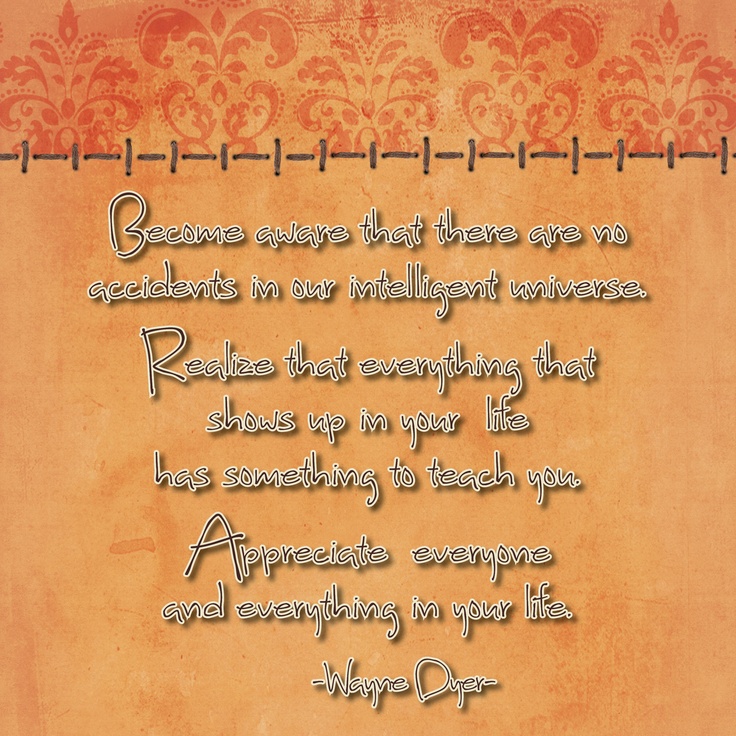 Become aware that there are no
accidents in our intelligent universe.
Realize that everything that
shows up in your life
has something to teach you.
Appreciate everyone
and everything in your life.
-Wayne Dyer-